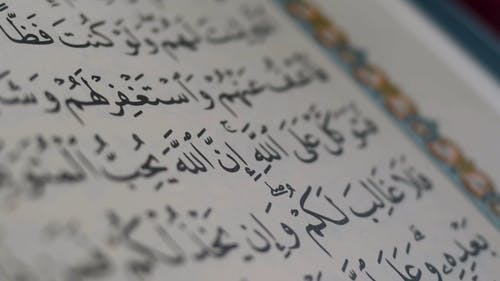 لِنتَ لَهُمْ وَلَوْ كُنتَ فَظًّا
فَٱعْفُ عَنْهُمْ وَٱسْتَغْفِرْ لَهُمْ وَشَا
فَتَوَكَّلْ عَلَى ٱللَّهِ ۚ إِنَّ ٱللَّهَ يُحِبُّ ٱلْمُتَوَ
فَلَا غَالِبَ لَكُمْ ۖ وَإِن يَخْذُلْكُمْ
بَعْدِهِۦ ۗ وَعَلَى ٱللَّهِ